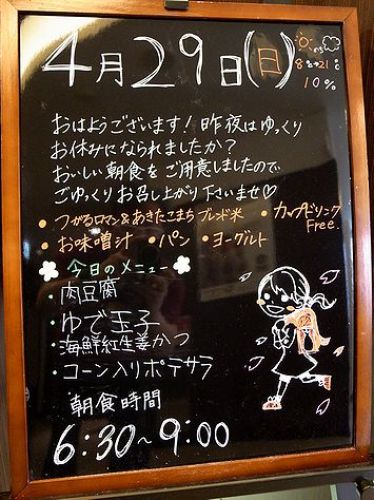 4月29日(日)
8℃→21℃
10%
おはようございます!昨夜はゆっくり
お休みになられましたか?
おいしい朝食をご用意しましたので
ごゆっくりお召し上がり下さいませ♡
・つがるロマン&あきたこまちブレンド米 ・カップドリンク Free.
・お味噌汁 ・パン ・ヨーグルト
今日のメニュー
・肉豆腐
・ゆで玉子
・海鮮紅生姜かつ
・コーン入りポテサラ
朝食時間
6:30~9:00